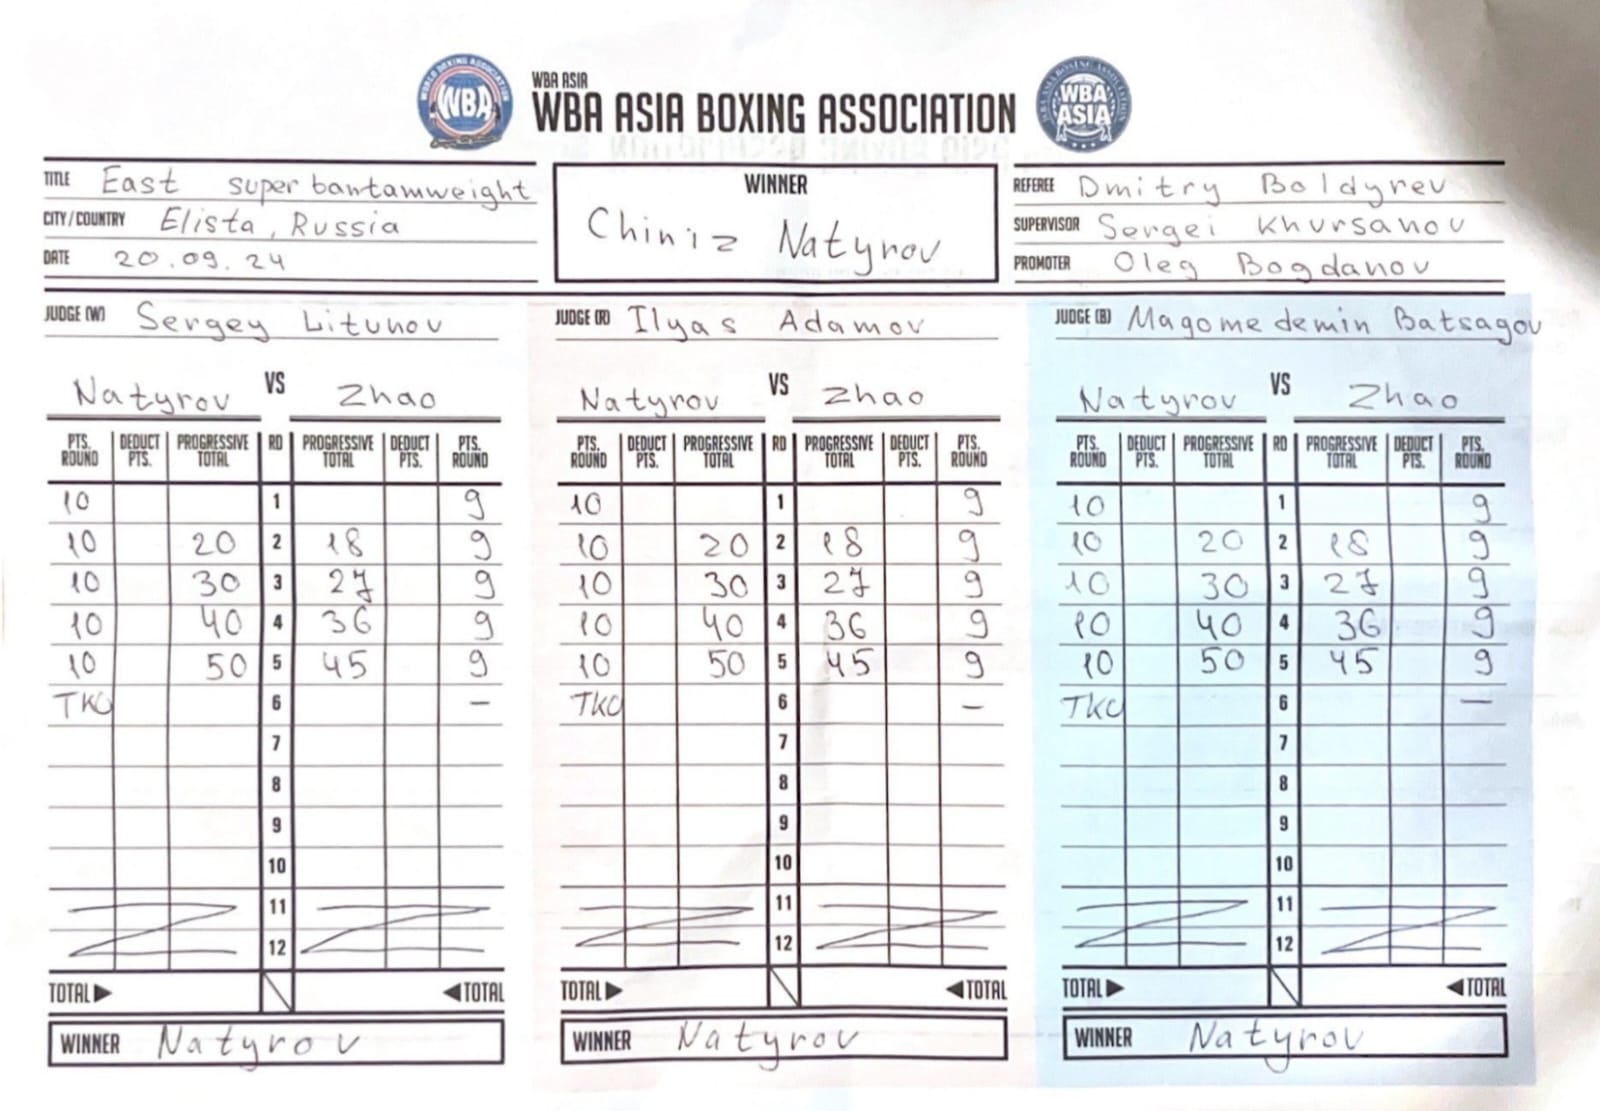 WBA ASIA
WBA ASIA BOXING ASSOCIATION
WORLD BOXING ASSOCIATION
WBA
WBA ASIA BOXING ASSOCIATION
WBA
ASIA
TITLE East super bantamweight
CITY/COUNTRY Elista, Russia
DATE 20.09.24
WINNER
Chiniz Natyrov
REFEREE Dmitry Boldyrev
SUPERVISOR Sergei Khursanov
PROMOTER Oleg Bogdanov
JUDGE (W) Sergey Litunov
Natyrov VS Zhao
PTS. ROUND DEDUCT PTS. PROGRESSIVE TOTAL RD PROGRESSIVE TOTAL DEDUCT PTS. PTS. ROUND
10 1 9
10 20 2 18 9
10 30 3 27 9
10 40 4 36 9
10 50 5 45 9
TKO 6 –
7
8
9
10
11
12
TOTAL▶ ◀TOTAL
WINNER Natyrov
JUDGE (R) Ilyas Adamov
Natyrov VS Zhao
PTS. ROUND DEDUCT PTS. PROGRESSIVE TOTAL RD PROGRESSIVE TOTAL DEDUCT PTS. PTS. ROUND
10 1 9
10 20 2 18 9
10 30 3 27 9
10 40 4 36 9
10 50 5 45 9
TKO 6 –
7
8
9
10
11
12
TOTAL▶ ◀TOTAL
WINNER Natyrov
JUDGE (B) Magomedemin Batsagov
Natyrov VS Zhao
PTS. ROUND DEDUCT PTS. PROGRESSIVE TOTAL RD PROGRESSIVE TOTAL DEDUCT PTS. PTS. ROUND
10 1 9
10 20 2 18 9
10 30 3 27 9
10 40 4 36 9
10 50 5 45 9
TKO 6 –
7
8
9
10
11
12
TOTAL▶ ◀TOTAL
WINNER Natyrov